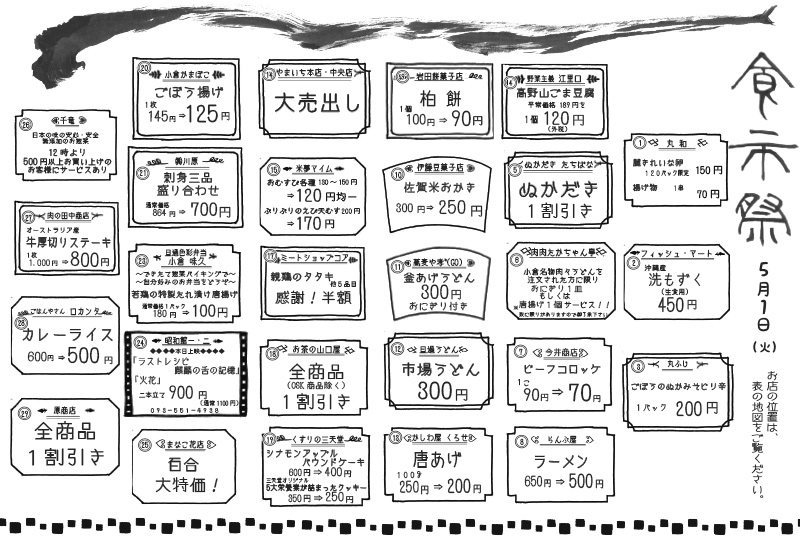 食市祭
5月1日（火）
お店の位置は、
表の地図をご覧ください。
① 丸和
麗きれいな卵
120パック限定 150円
揚げ物 1串 70円
② フィッシュ・アート
沖縄産
洗もずく
（生食用）
450円
③ 丸ふじ
ごぼうのぬかみそピリ辛
1パック 200円
⑭ 野菜主義 江里口
高野山ごま豆腐
平常価格 189円を
1個 120円
（外税）
⑤ ぬかだき たちばな
ぬかだき
1割引き
⑥ 肉肉たかちゃん亭
小倉名物肉々うどんを
注文された方に限り
おにぎり1皿
もしくは
唐揚げ1個サービス！！
数に限りがありますので御了承下さい
⑦ 今井商店
ビーフコロッケ
1コ
90円⇒70円
⑧ らんぷ屋
ラーメン
650円⇒500円
岩田餅菓子店
柏餅
1個
100円⇒90円
⑩ 伊藤豆菓子店
佐賀米おかき
300円⇒250円
⑪ 蕎麦や孝（CO）
釜あげうどん
300円
おにぎり付き
⑫ 旦過うどん
市場うどん
300円
⑬ かしわ屋 くろせ
唐あげ
100g
250円⇒200円
⑭ やまいち本店・中央店
大売出し
⑮ 米夢マイム
おむすび各種 130〜150円
⇒120円均一
ぷりぷりのえび天むす200円
⇒170円
⑰ ミートショップコア
親鶏のタタキ
他5品目
感謝！半額
⑱ お茶の山口屋
全商品
（OSK商品除く）
1割引き
⑲ くすりの三天堂
シナモンアップル
パウンドケーキ
600円⇒400円
三天堂オリジナル
5大栄養素が詰まったクッキー
350円⇒250円
⑳ 小倉かまぼこ
ごぼう揚げ
1枚
145円⇒125円
㉑ ㈱川原
刺身三品
盛り合わせ
通常価格
864円⇒700円
㉓ 旦過色彩弁当
小倉 味久
〜できたて惣菜バイキングで〜
〜自分好みのお弁当をどうぞ〜
若鶏の特製たれ漬け唐揚げ
通常価格1パック
180円⇒100円
㉔ 昭和館1・2
◆◆◆◆本日上映◆◆◆◆
『ラストレシピ
麒麟の舌の記憶』
『火花』
二本立て 900円
（通常1100円）
093-551-4938
㉕ まなご花店
百合
大特価！
㉖ 千竜
日本の味の安心・安全
無添加のお惣菜
12時より
500円以上お買い上げの
お客様にサービスあり
㉗ 肉の田中商店
オーストラリア産
牛厚切りステーキ
1枚
1,000円⇒800円
㉘ ごはんやさん ロカンタ
カレーライス
600円⇒500円
㉙ 原商店
全商品
1割引き